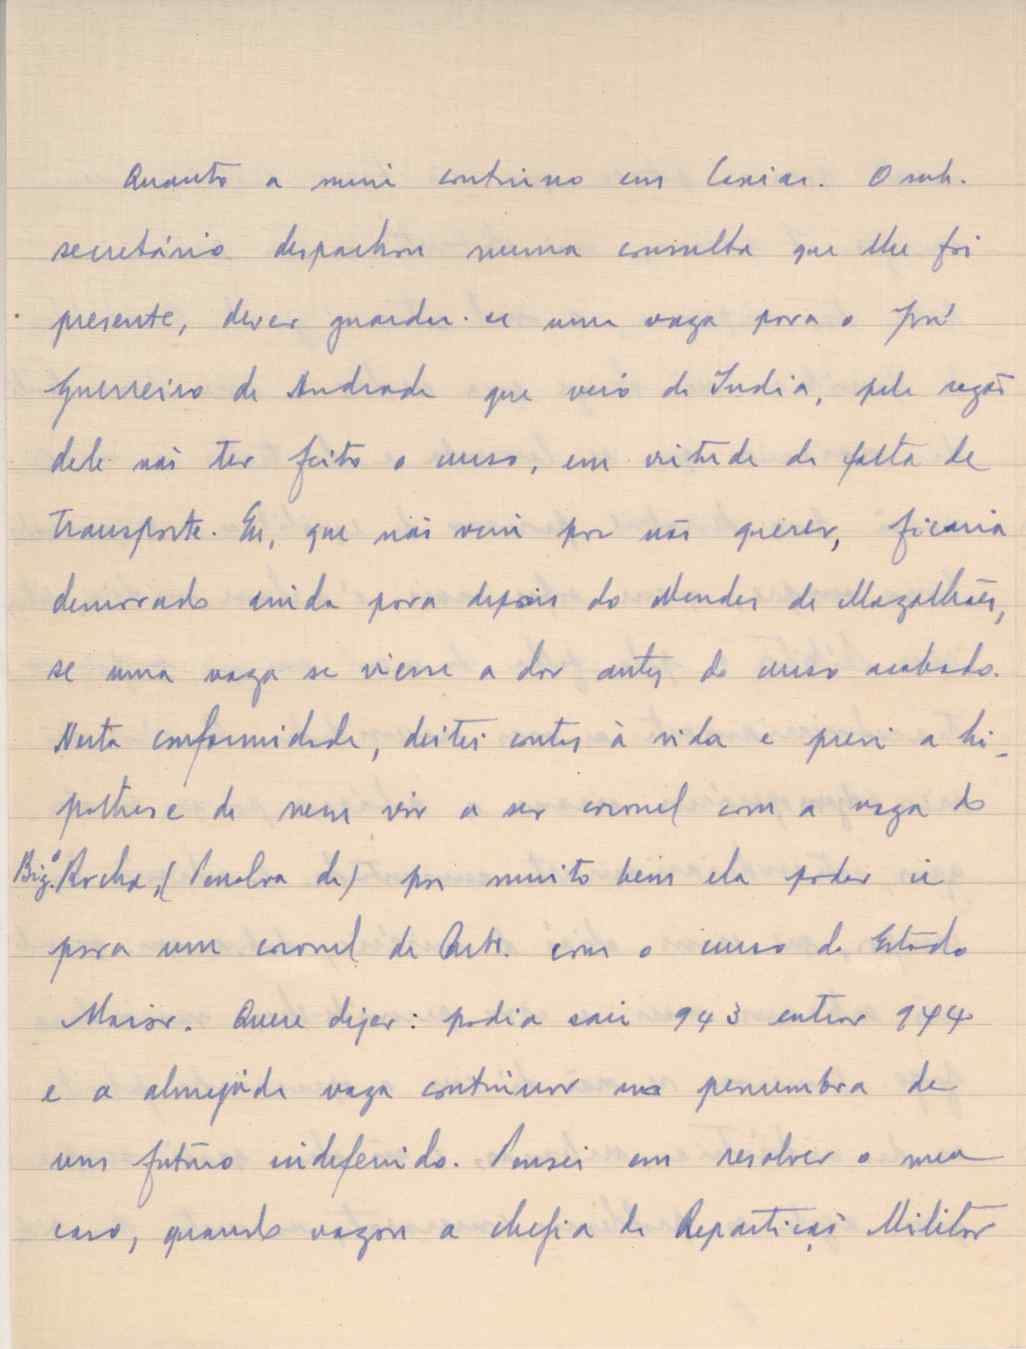 Quanto a mim continuo em Caxias. O sub-
secretário despachou numa consulta que lhe foi
presente, dever guardar-se uma vaga para o José
Guerreiro de Andrade que veio da India, pela razão
dele não ter feito o curso, em virtude da falta de
transporte. Eu, que não vim por não querer, ficaria
demorado ainda para depois do Mendes de Magalhães,
se uma vaga se viesse a dar antes do curso acabado.
Nesta conformidade, deitei contas à vida e previ a hi-
pothese de nem vir a ser coronel com a vaga do
Brig.º Rocha, (Penalva da) por muito bem ela poder ir
para um coronel de Art. com o curso do Estado
Maior. Quere dizer: podia sair 943 entrar 944
e a almejada vaga continuar na penumbra de
um futuro indefenido. Pensei em resolver o meu
caso, quando vagou a chefia da Repartição Militar